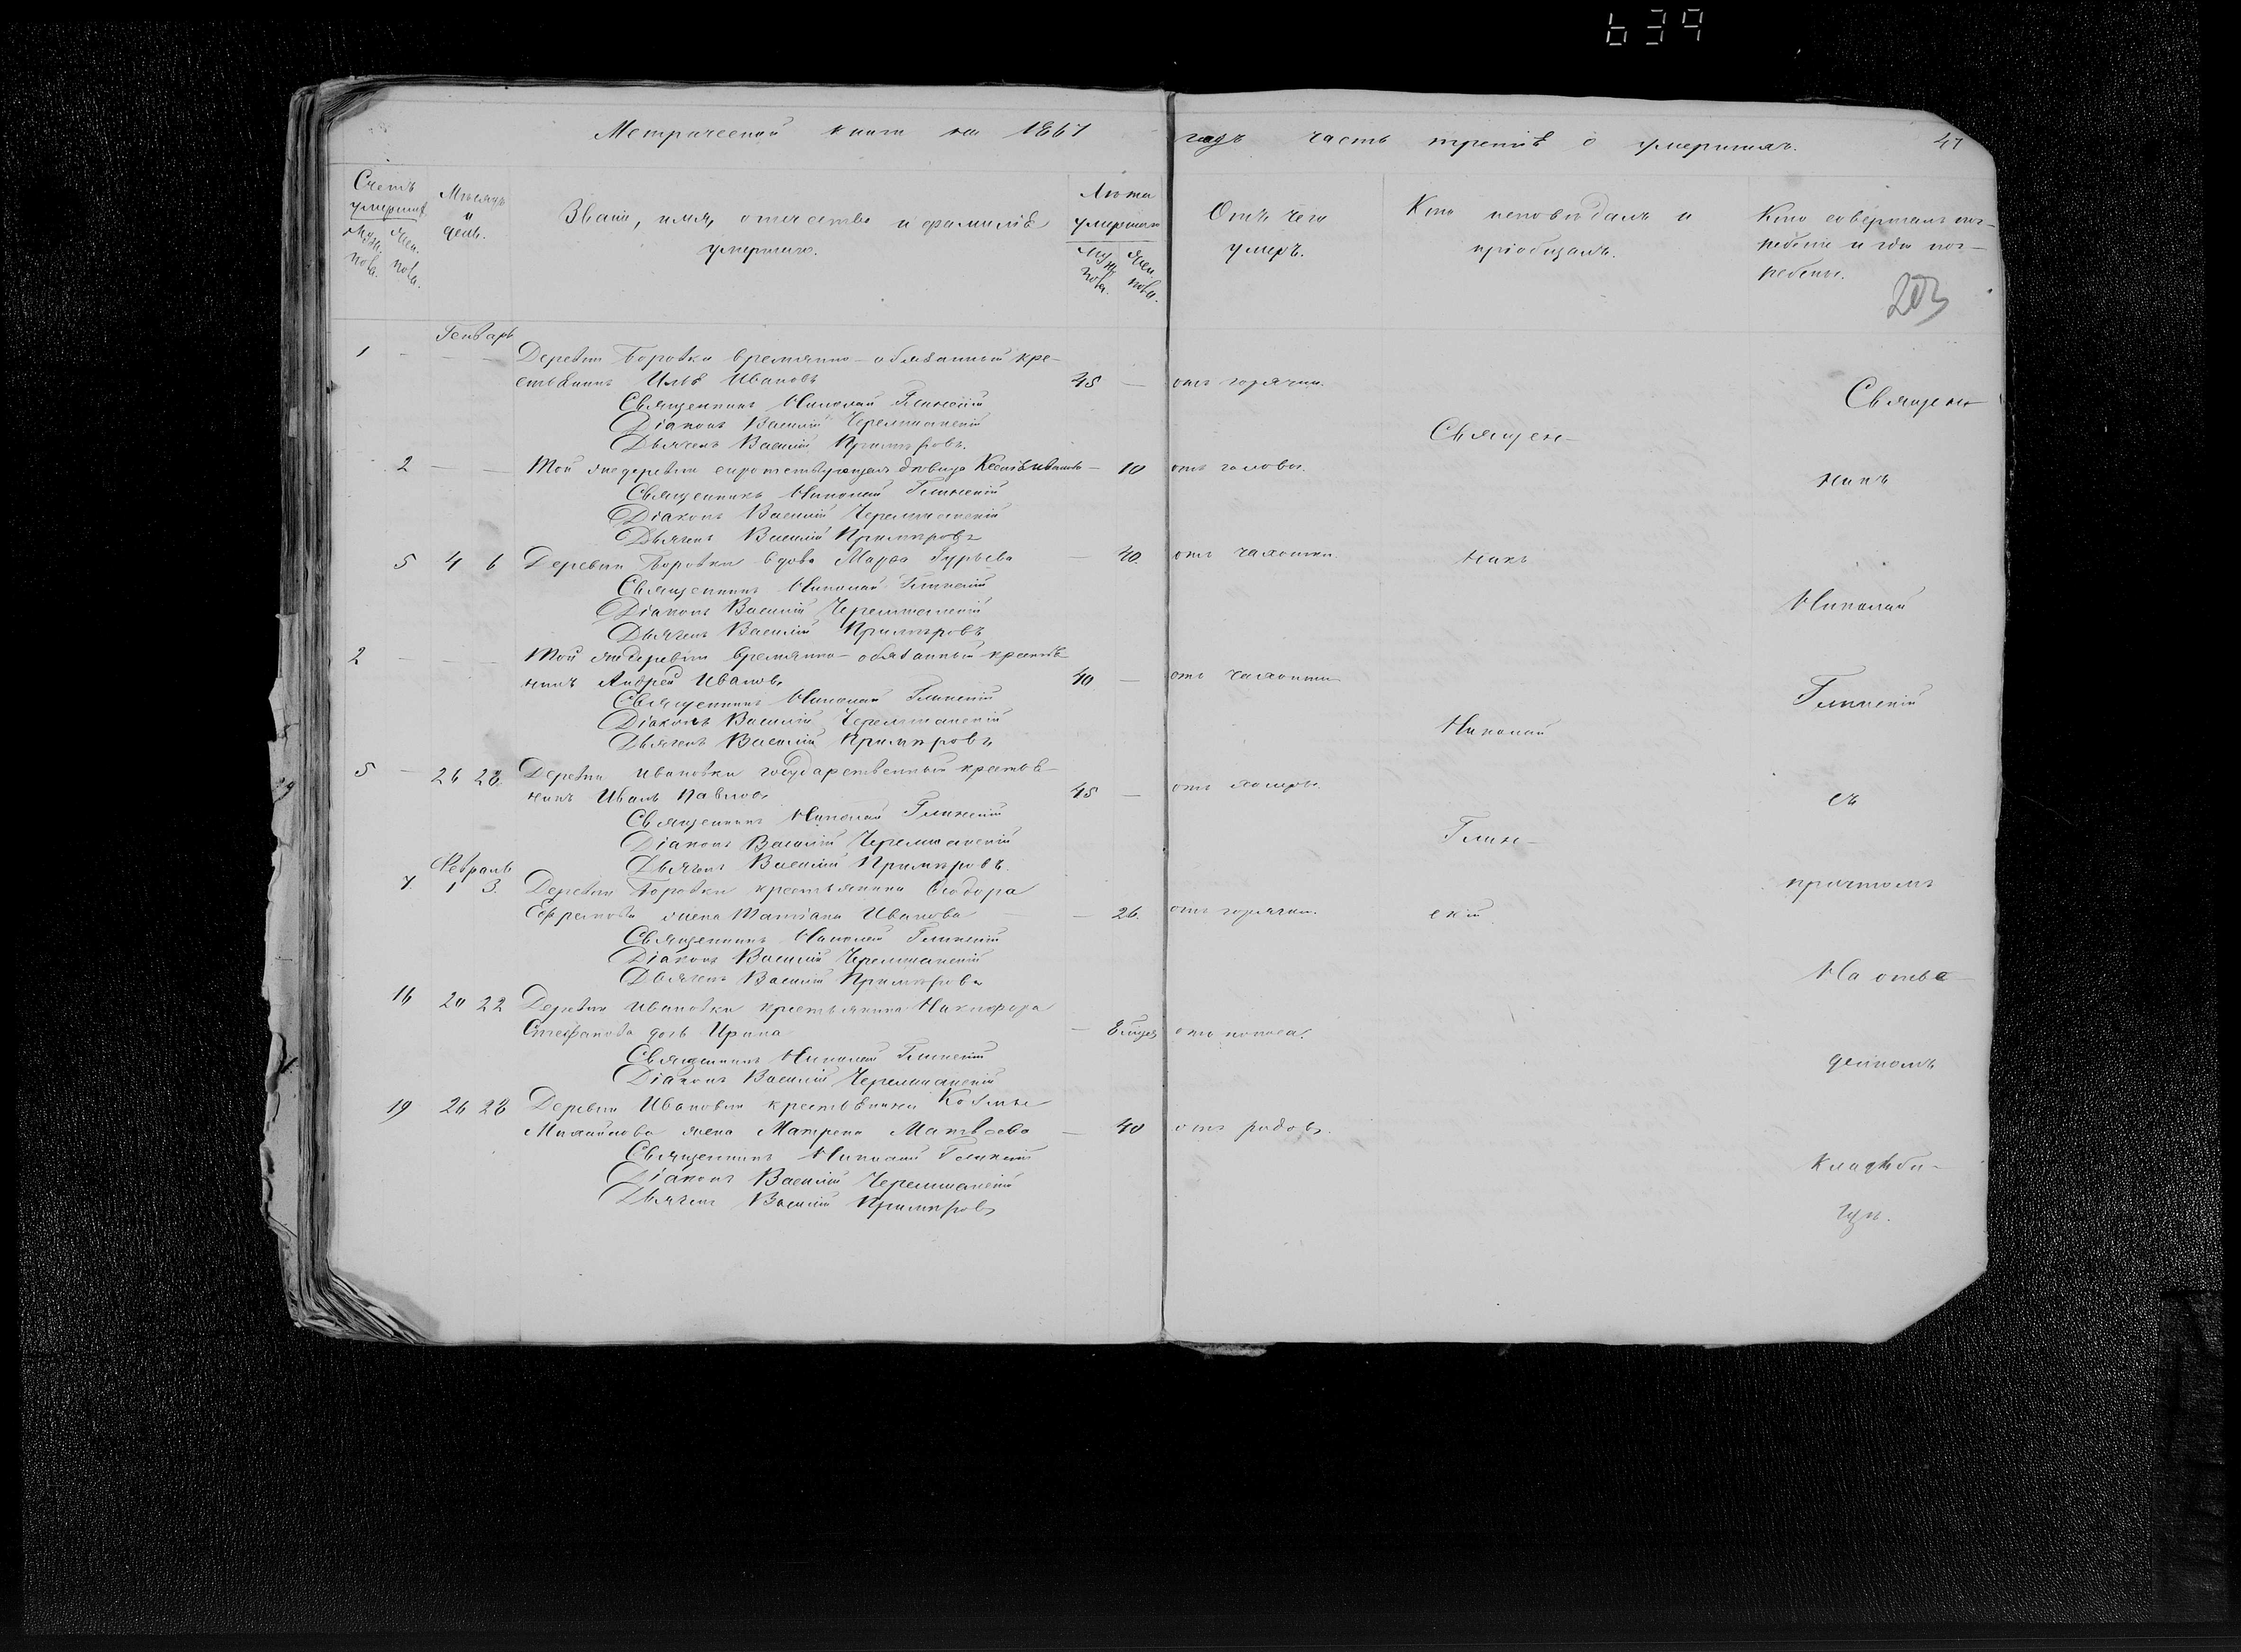 639
Метрической книги на 1867 годъ часть третія о умершихъ. 47
Счетъ умершихъ
Муж. пола.
Жен. пола.
Мѣсяцъ и день.
Званіе, имя, отчество и фамилія умершаго.
Лѣта умершаго
Муж. пола.
Жен. пола.
Отъ чего умеръ.
Кто исповѣдалъ и пріобщалъ.
Кто совершалъ пог-
ребеніе и гдѣ пог-
ребены.
203
Генварь
1 - Деревни Боровки временно-обязанный кре-
стьянинъ Илья Ивановъ 45 — отъ горячки.
Священникъ Николай Глинскій
Діаконъ Василій Черемшанскій
Дьячекъ Василій Примѣровъ.
2 — Той же деревни Ксенія Иванова — 10 отъ головы.
Священникъ Николай Глинскій
Діаконъ Василій Черемшанскій
Дьячекъ Василій Примѣровъ
5 4 6 Деревни Боровки вдова Марѳа Гурьева — 40. отъ чахотки.
Священникъ Николай Глинскій
Діаконъ Василій Черемшанскій
Дьячекъ Василій Примѣровъ
2 — Той же деревни временно-обязанный крестья
нинъ Андрей Ивановъ 40 — отъ чахотки
Священникъ Николай Глинскій
Діаконъ Василій Черемшанскій
Дьячекъ Василій Примѣровъ
5 - 26 28. Деревни Ивановки государственный крестья-
нинъ Иванъ Павловъ 45 — отъ холеры.
Священникъ Николай Глинскій
Діаконъ Василій Черемшанскій
Дьячекъ Василій Примѣровъ.
Февраль
7. 1 3. Деревни Боровки крестьянина Ѳеодора
Ефремова жена Татіана Иванова — 26. отъ горячки.
Священникъ Николай Глинскій
Діаконъ Василій Черемшанскій
Дьячекъ Василій Примѣровъ
16 20 22 Деревни Ивановки крестьянина Никифора
Стефанова дочь Ирина — отъ поноса.
Священникъ Николай Глинскій
Діаконъ Василій Черемшанскій
19 26 28 Деревни Ивановки крестьянина Козьмы
Михайлова жена Матрена Матвѣева — 40 отъ родовъ.
Священникъ Николай Глинскій
Діаконъ Василій Черемшанскій
Дьячекъ Василій Примѣровъ
Священ-
никъ
Николай
Глин-
скій.
Священ-
никъ
Николай
Глинскій
съ
причтомъ
На отве-
денномъ
кладби-
щѣ.